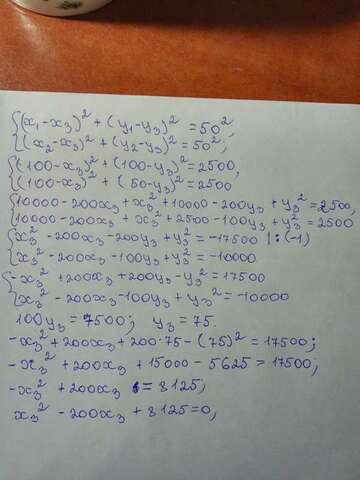 {(x₁-x₃)² + (y₁-y₃)² = 50²,
{(x₂-x₃)² + (y₂-y₃)² = 50²;
{(100-x₃)² + (100-y₃)² = 2500,
{(100-x₃)² + (50-y₃)² = 2500
{10000-200x₃ + x₃² + 10000 - 200y₃ + y₃² = 2500,
{10000-200x₃ + x₃² + 2500 - 100y₃ + y₃² = 2500
{x₃² - 200x₃ - 200y₃ + y₃² = -17500 |:(-1)
{x₃² - 200x₃ - 100y₃ + y₃² = -10000.
{-x₃² + 200x₃ + 200y₃ - y₃² = 17500
{x₃² - 200x₃ - 100y₃ + y₃² = -10000
100y₃ = 7500; y₃ = 75.
-x₃² + 200x₃ + 200·75 - (75)² = 17500;
-x₃² + 200x₃ + 15000 - 5625 = 17500;
-x₃² + 200x₃ = 8125;
x₃² - 200x₃ + 8125 = 0;